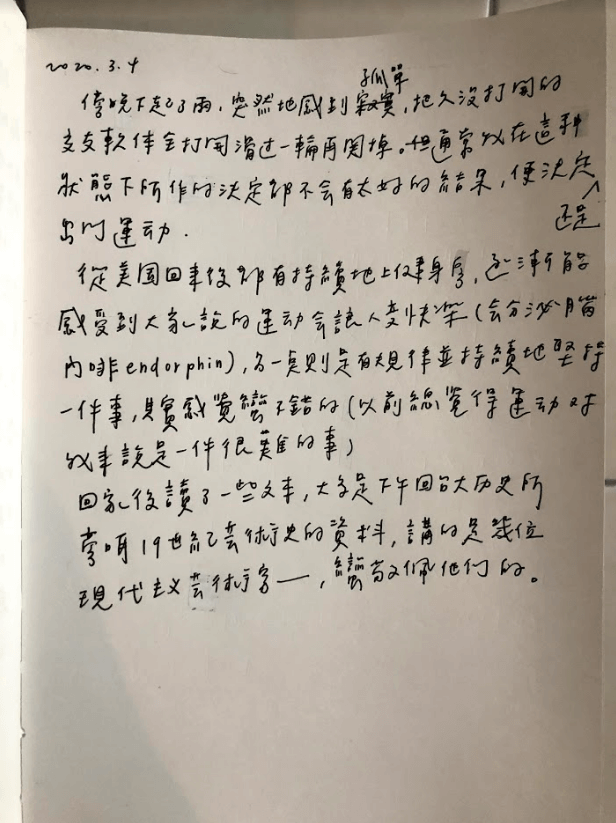 2020.3.4
孤單
傍晚下起了雨，突然地感到寂寞，把久沒打開的
交友軟体全打開滑过一輪再関掉。但通常我在這种
狀態下所作的決定都不会有太好的結果，便決定
还是
出门運动．
從美国回來後都有持續地上健身房，逐漸能
感受到大家說的運动会讓人变快樂（会分泌腦
內啡endorphin），另一点則是有規律並持續地堅持
一件事，其實感覺蠻不錯的（以前總覺得運动对
我來說是一件很難的事）
回家後讀了一些文本，大多是下午回台大历史所
旁听19世紀芸術史的資料，講的是幾位
現代主义芸術家——，蠻敬佩他们的。